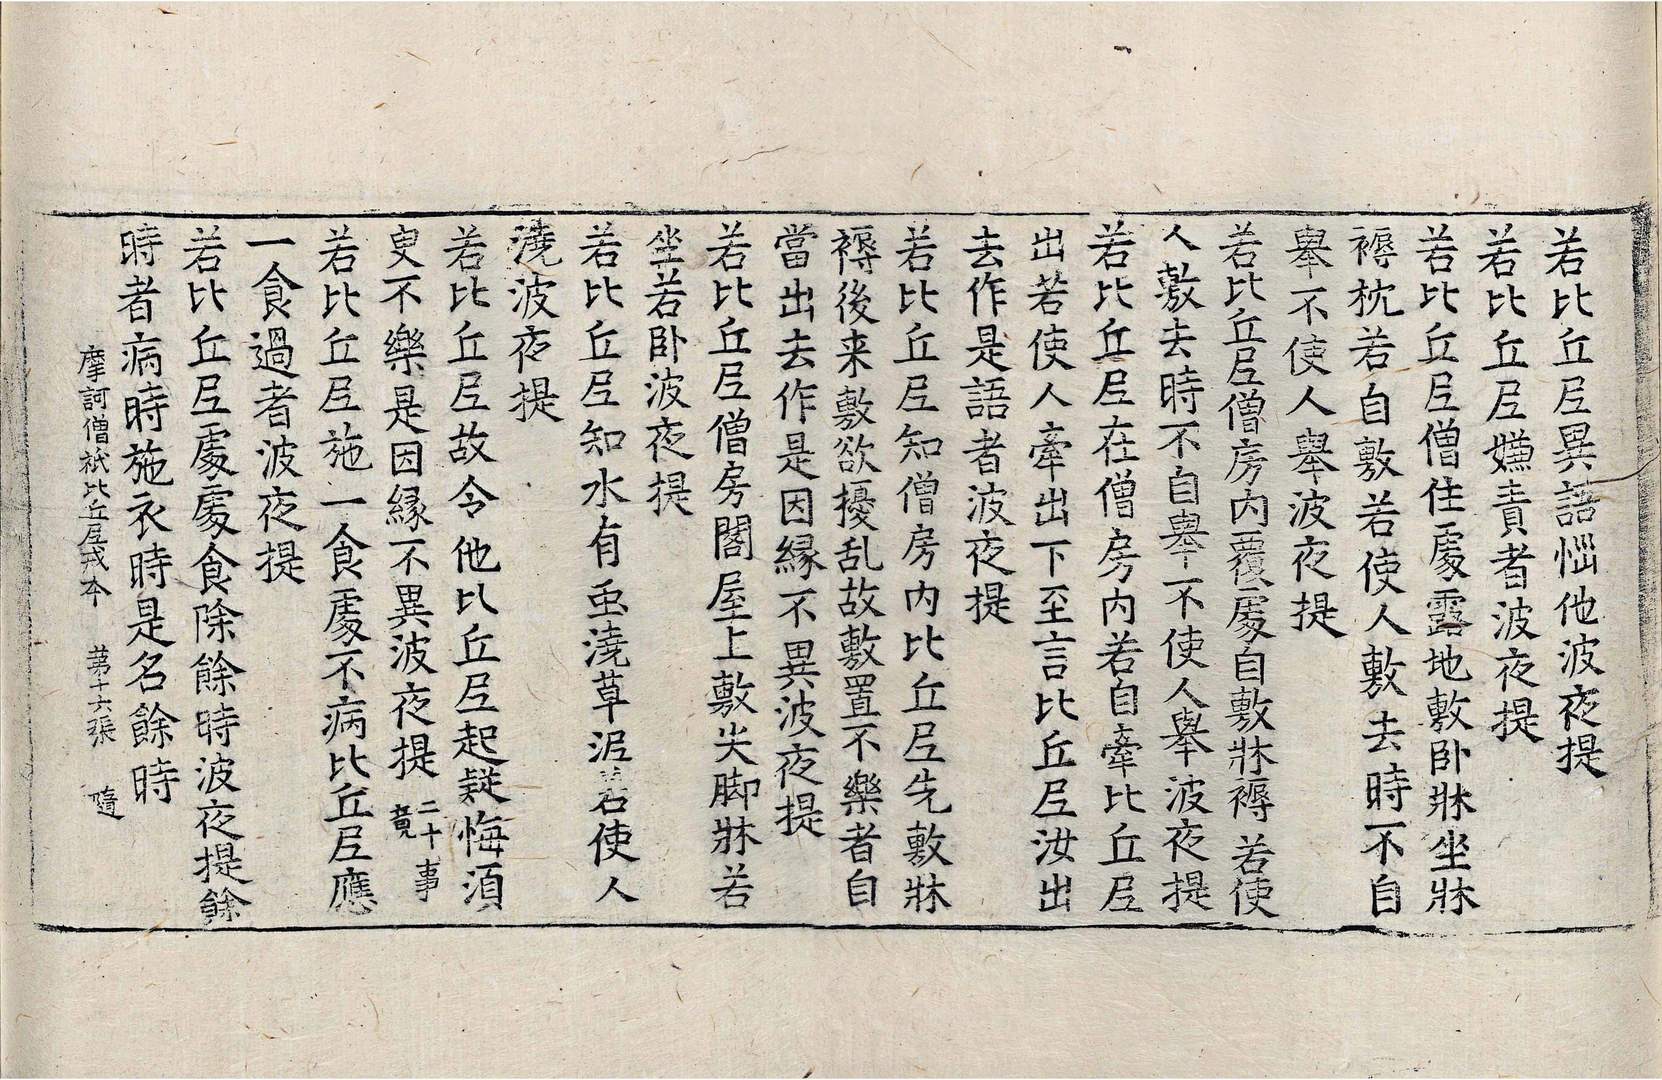 若比丘尼異語惱他波夜提
若比丘尼嫌責者波夜提
若比丘尼僧住處露地敷卧牀坐牀
褥枕若自敷若使人敷去時不自
舉不使人舉波夜提
若比丘尼僧房内覆處自敷牀褥若使
人敷去時不自舉不使人舉波夜提
若比丘尼在僧房内若自牽比丘尼
出若使人牽出下至言比丘尼汝出
去作是語者波夜提
若比丘尼知僧房内比丘尼先敷牀
褥後来敷欲擾乱故敷置不樂者自
當出去作是因縁不異波夜提
若比丘尼僧房閣屋上敷尖脚牀若
坐若卧波夜提
若比丘尼知水有虫澆草泥若使人
澆波夜提
若比丘尼故令他比丘尼起疑悔須
臾不樂是因縁不異波夜提二十事竟
若比丘尼施一食處不病比丘尼應
一食過者波夜提
若比丘尼處處食除餘時波夜提餘
時者病時施衣時是名餘時
摩訶僧祇比丘尼戒本 苐十六張 隨